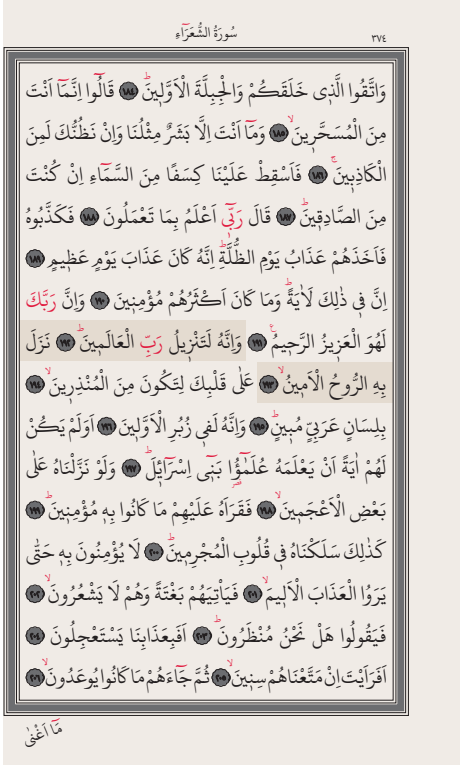 سُورَةُ الشُّعَرَاءِ
٣٧٤
وَاتَّقُوا الَّذِي خَلَقَكُمْ وَالْجِبِلَّةَ الْاَوَّلِينَۜ ﴿١٨٤﴾ قَالُٓوا اِنَّمَٓا اَنْتَ
مِنَ الْمُسَحَّرِينَۙ ﴿١٨٥﴾ وَمَٓا اَنْتَ اِلَّا بَشَرٌ مِثْلُنَا وَاِنْ نَظُنُّكَ لَمِنَ
الْكَاذِبِينَۚ ﴿١٨٦﴾ فَاَسْقِطْ عَلَيْنَا كِسَفًا مِنَ السَّمَٓاءِ اِنْ كُنْتَ
مِنَ الصَّادِقِينَۜ ﴿١٨٧﴾ قَالَ رَبِّٓي اَعْلَمُ بِمَا تَعْمَلُونَ ﴿١٨٨﴾ فَكَذَّبُوهُ
فَاَخَذَهُمْ عَذَابُ يَوْمِ الظُّلَّةِۜ اِنَّهُ كَانَ عَذَابَ يَوْمٍ عَظِيمٍ ﴿١٨٩﴾
اِنَّ فِي ذٰلِكَ لَاٰيَةًۜ وَمَا كَانَ اَكْثَرُهُمْ مُؤْمِنِينَ ﴿١٩٠﴾ وَاِنَّ رَبَّكَ
لَهُوَ الْعَزِيزُ الرَّحِيمُ۟ ﴿١٩١﴾ وَاِنَّهُ لَتَنْزِيلُ رَبِّ الْعَالَمِينَۜ ﴿١٩٢﴾ نَزَلَ
بِهِ الرُّوحُ الْاَمِينُۙ ﴿١٩٣﴾ عَلٰى قَلْبِكَ لِتَكُونَ مِنَ الْمُنْذِرِينَۙ ﴿١٩٤﴾
بِلِسَانٍ عَرَبِيٍّ مُبِينٍۜ ﴿١٩٥﴾ وَاِنَّهُ لَفِي زُبُرِ الْاَوَّلِينَ ﴿١٩٦﴾ اَوَلَمْ يَكُنْ
لَهُمْ اٰيَةً اَنْ يَعْلَمَهُ عُلَمٰٓؤُا بَنِٓي اِسْرَٓائِلَۜ ﴿١٩٧﴾ وَلَوْ نَزَّلْنَاهُ عَلٰى
بَعْضِ الْاَعْجَمِينَۙ ﴿١٩٨﴾ فَقَرَاَهُ عَلَيْهِمْ مَا كَانُوا بِهِ مُؤْمِنِينَۜ ﴿١٩٩﴾
كَذٰلِكَ سَلَكْنَاهُ فِي قُلُوبِ الْمُجْرِمِينَۜ ﴿٢٠٠﴾ لَا يُؤْمِنُونَ بِهِ حَتّٰى
يَرَوُا الْعَذَابَ الْاَلِيمَۙ ﴿٢٠١﴾ فَيَاْتِيَهُمْ بَغْتَةً وَهُمْ لَا يَشْعُرُونَۙ ﴿٢٠٢﴾
فَيَقُولُوا هَلْ نَحْنُ مُنْظَرُونَۜ ﴿٢٠٣﴾ اَفَبِعَذَابِنَا يَسْتَعْجِلُونَ ﴿٢٠٤﴾
اَفَرَاَيْتَ اِنْ مَتَّعْنَاهُمْ سِنِينَۙ ﴿٢٠٥﴾ ثُمَّ جَٓاءَهُمْ مَا كَانُوا يُوعَدُونَۙ ﴿٢٠٦﴾
مَٓا اَغْنٰى